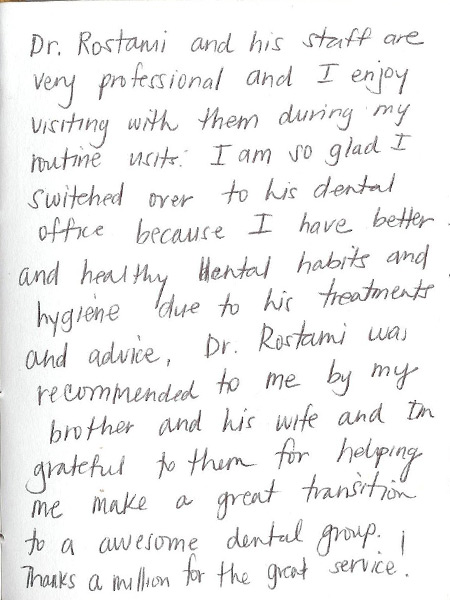 Dr. Rostami and his staff are
very professional and I enjoy
visiting with them during my
routine visits. I am so glad I
switched over to his dental
office because I have better
and healthy dental habits and
hygiene due to his treatments
and advice. Dr. Rostami was
recommended to me by my
brother and his wife and I'm
grateful to them for helping
me make a great transition
to a awesome dental group.
Thanks a million for the great service!